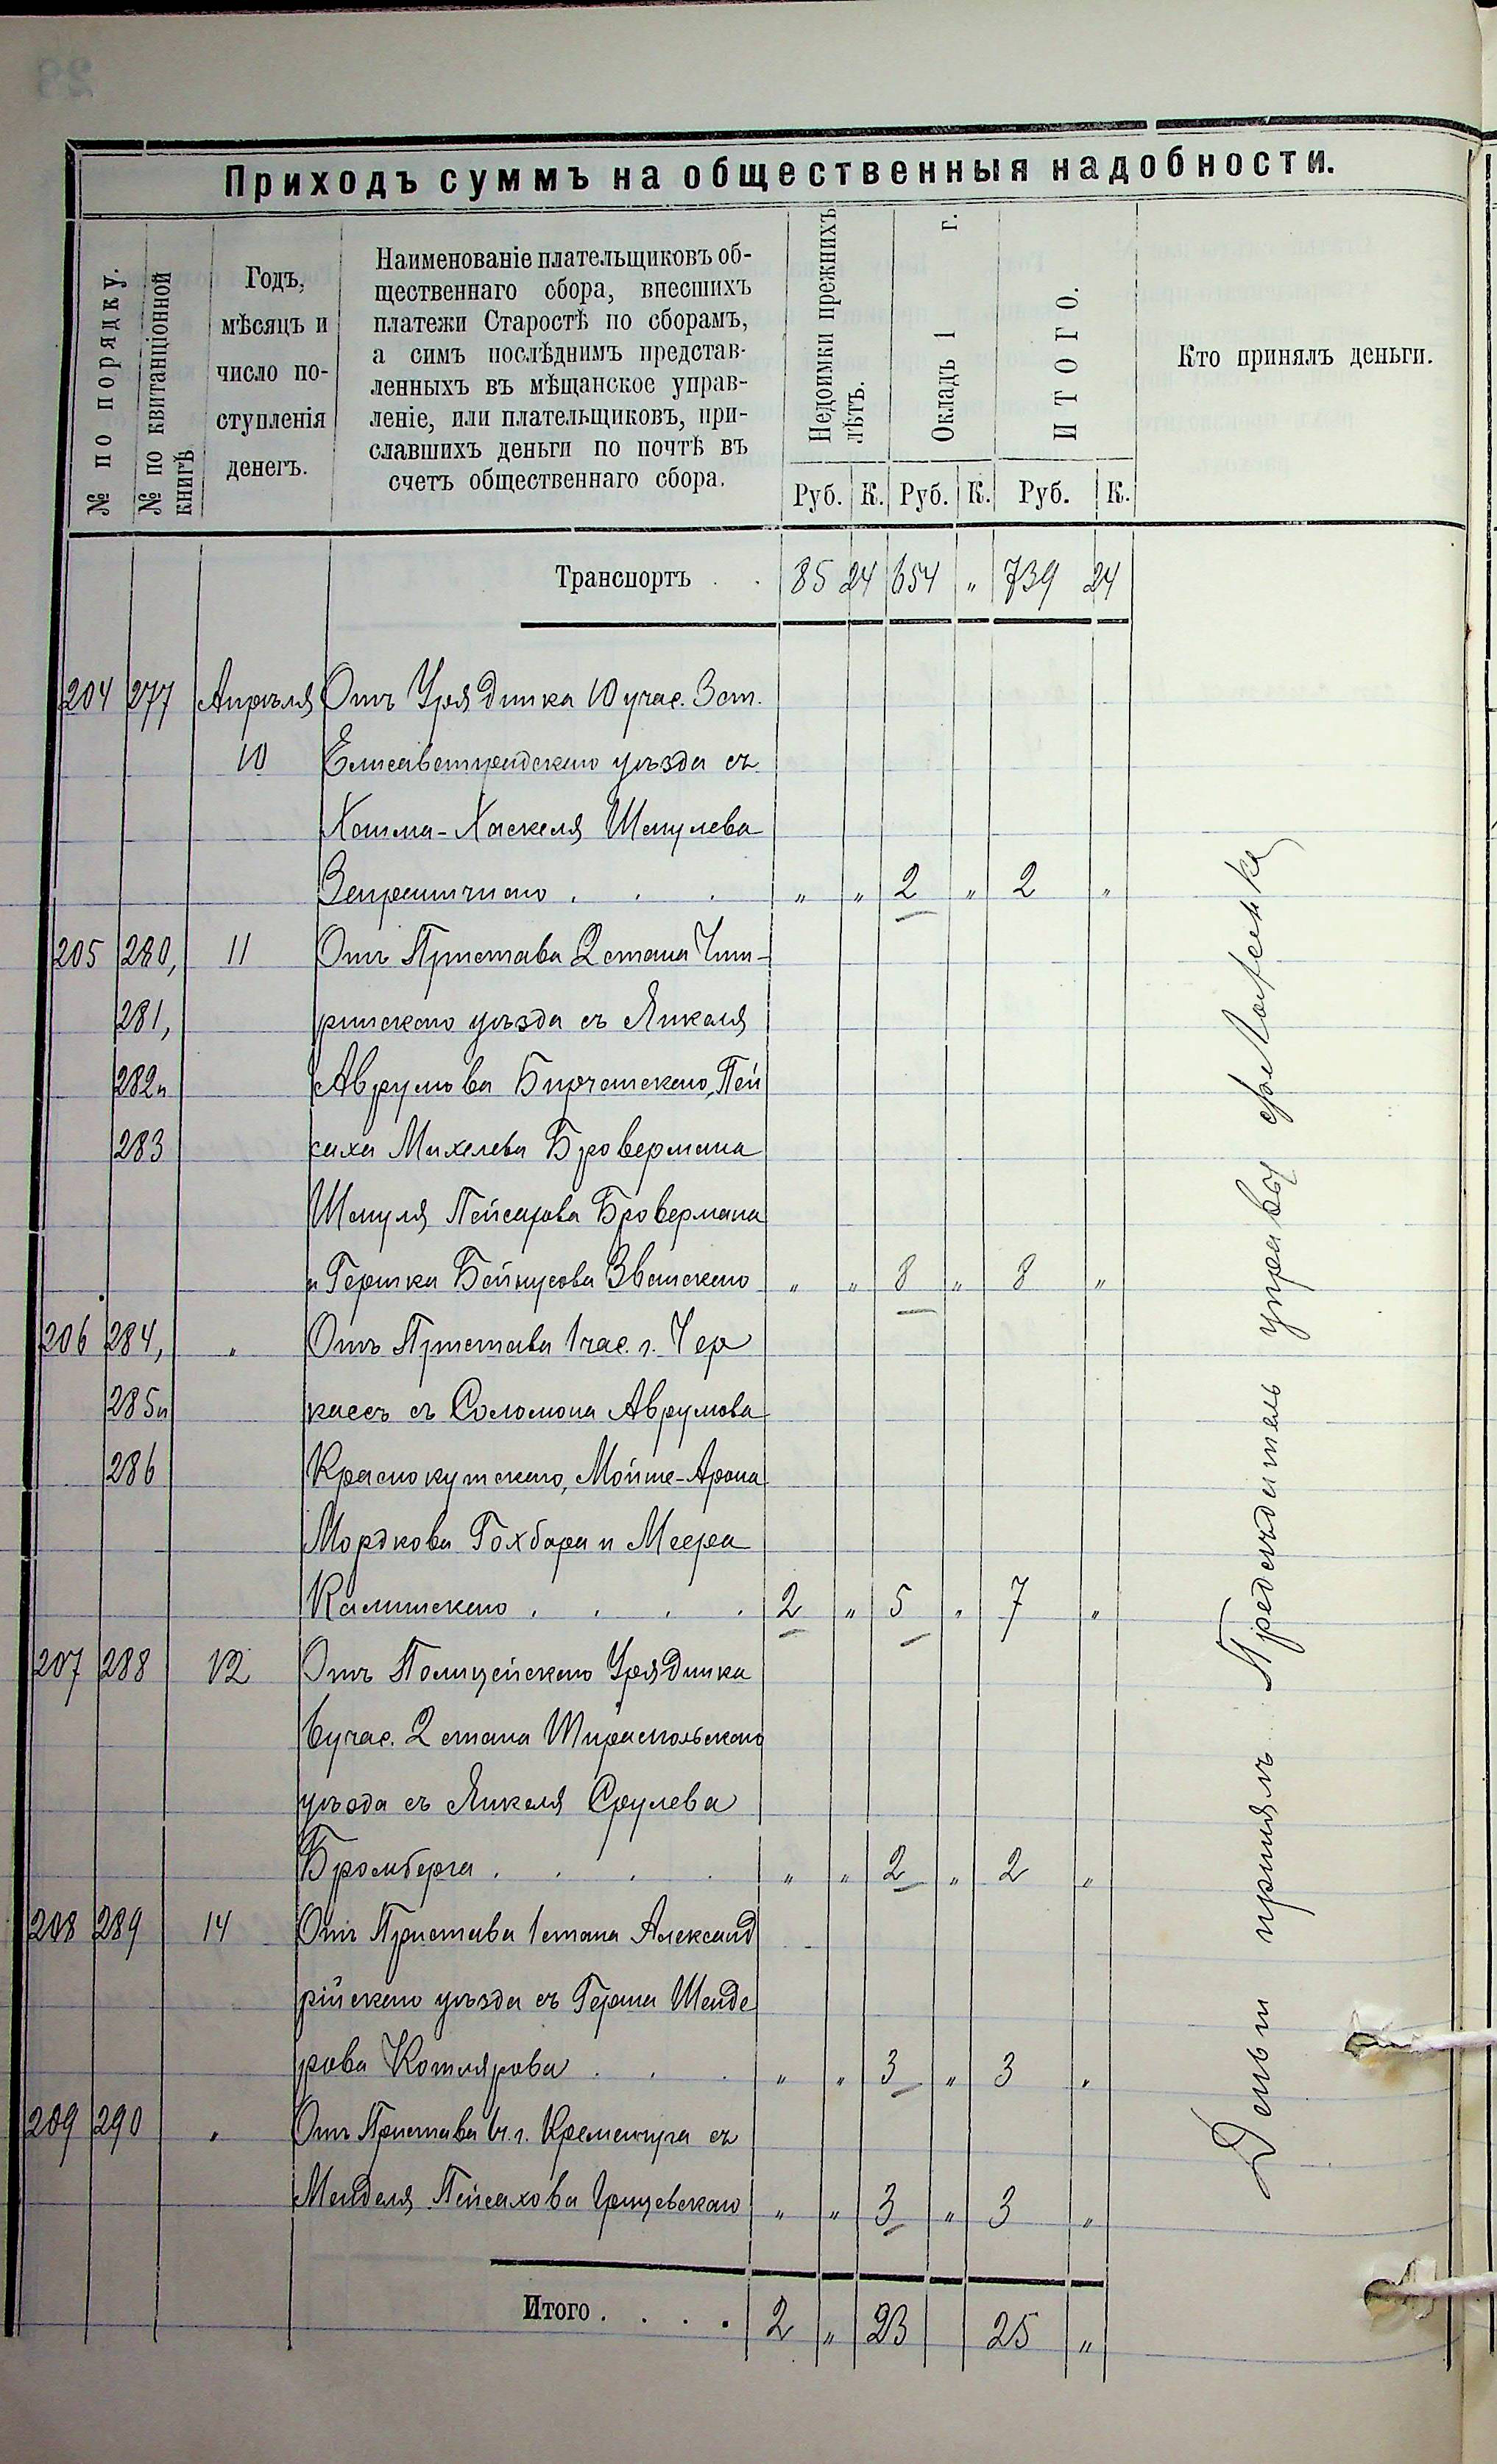 Приходъ суммъ на общественныя надобности.
№ по порядку.
№ по квитанціонной
книгѣ
Годъ,
мѣсяцъ и
число по-
ступленія
денегъ.
Наименованіе плательщиковъ об-
щественнаго сбора, внесшихъ
платежи Старостѣ по сборамъ,
а симъ послѣднимъ представ-
ленныхъ въ мѣщанское управ-
леніе, или плательщиковъ, при-
славшихъ деньги по почтѣ въ
счетъ общественнаго сбора.
Недоимки прежнихъ
лѣтъ.
Окладъ 1 г.
ИТОГО.
Кто принялъ деньги.
Руб. К. Руб. К. Руб. К.
Транспортъ . . 85 24 654 " 739 24
204 277 Апрѣля Отъ Урядника 10 учас. 3 ст.
10 Елисаветградскаго уѣзда съ
Хаима-Хаскеля Шмулева
" " 2 " 2 "
205 280, 11 Отъ Пристава 2 стана Чиги-
281, ринскаго уѣзда съ Янкеля
282 и Аврумова Пей
283 саха Михелева Бровермана
Шмуля Пейсахова Бровермана
и Гершка Бейнусова Званскаго " " 8 " 8 "
206 284, " Отъ Пристава 1 час. г. Чер
285 и кассъ съ Соломона Аврумова
286 Краснокутскаго, Мойше-Арона
Мордкова Гохбара и Меера
Калинскаго . . . . 2 " 5 " 7 "
207 288 12 Отъ Полицейскаго Урядника
6 учас. 2 стана Тираспольскаго
уѣзда съ Янкеля Срулева
Бромберга . . . . " " 2 " 2 "
208 289 14 Отъ Пристава 1 стана Александ
рійскаго уѣзда съ Герша Шенде
рова Котлярова . . . " " 3 " 3 "
209 290 " Отъ Пристава 1 ч. г. Кременчуга съ
Менделя Пейсахова " " 3 " 3 "
Итого . . . . 2 " 23 25 "
Деньги принялъ Предсѣдатель управы